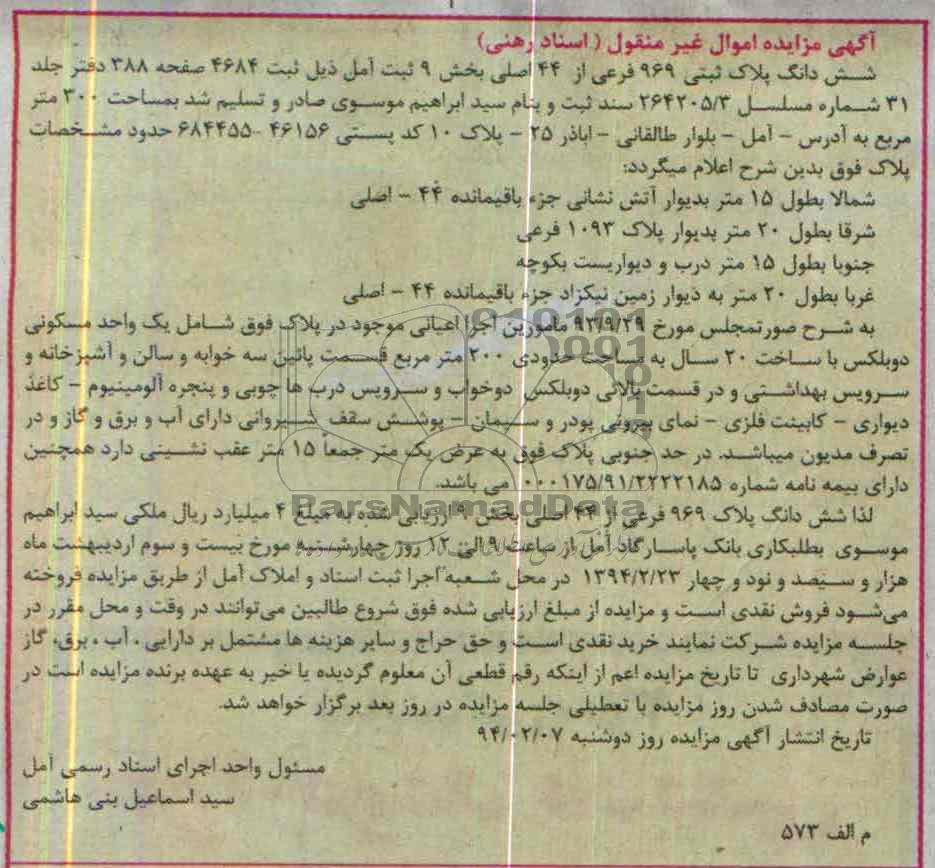 آگهی مزایده اموال غیر منقول ( اسناد رهنی)
شش دانگ پلاک ثبتی ۹۶۹ فرعی از ۴۴ اصلی بخش ۹ ثبت آمل ذیل ثبت ۴۶۸۴ صفحه ۳۸۸ دفتر جلد
۳۱ شماره مسلسل ۲۶۴۲۰۵/۳ سند ثبت و بنام سید ابراهیم موسوی صادر و تسلیم شد بمساحت ۳۰۰ متر
مربع به آدرس - آمل - بلوار طالقانی - اباذر ۲۵ - پلاک ۱۰ کد پستی ۴۶۱۵۶ -۶۸۴۴۵۵ حدود مشخصات
پلاک فوق بدین شرح اعلام میگردد:
شمالا بطول ۱۵ متر بدیوار آتش نشانی جزء باقیمانده ۴۴ - اصلی
شرقا بطول ۲۰ متر بدیوار پلاک ۱۰۹۳ فرعی
جنوبا بطول ۱۵ متر درب و دیواریست بکوچه
غربا بطول ۲۰ متر به دیوار زمین نیکزاد جزء باقیمانده ۴۴ - اصلی
به شرح صورتمجلس مورخ ۹۳/۹/۲۹ مامورین اجرا اعیانی موجود در پلاک فوق شامل یک واحد مسکونی
دوبلکس با ساخت ۲۰ سال به مساحت حدودی ۲۰۰ متر مربع قسمت پائین سه خوابه و سالن و آشپزخانه و
سرویس بهداشتی و در قسمت بالائی دوبلکس دوخواب و سرویس درب ها چوبی و پنجره آلومینیوم - کاغذ
دیواری - کابینت فلزی - نمای بیرونی پودر و سیمان - پوشش سقف شیروانی دارای آب و برق و گاز و در
تصرف مدیون میباشد. در حد جنوبی پلاک فوق به عرض یک متر جمعاً ۱۵ متر عقب نشینی دارد همچنین
دارای بیمه نامه شماره ۰۰۰۱۷۵/۹۱/۲۲۲۲۱۸۵ می باشد.
لذا شش دانگ پلاک ۹۶۹ فرعی از ۴۴ اصلی بخش ۹ ارزیابی شده به مبلغ ۴ میلیارد ریال ملکی سید ابراهیم
موسوی بطلبکاری بانک پاسارگاد آمل از ساعت ۹ الی ۱۲ روز چهارشنبه مورخ بیست و سوم اردیبهشت ماه
هزار و سیصد و نود و چهار ۱۳۹۴/۲/۲۳ در محل شعبه اجرا ثبت اسناد و املاک آمل از طریق مزایده فروخته
می‌شود فروش نقدی است و مزایده از مبلغ ارزیابی شده فوق شروع طالبین می‌توانند در وقت و محل مقرر در
جلسه مزایده شرکت نمایند خرید نقدی است و حق حراج و سایر هزینه ها مشتمل بر دارایی ، آب ، برق، گاز
عوارض شهرداری تا تاریخ مزایده اعم از اینکه رقم قطعی آن معلوم گردیده یا خیر به عهده برنده مزایده است در
صورت مصادف شدن روز مزایده با تعطیلی جلسه مزایده در روز بعد برگزار خواهد شد.
تاریخ انتشار آگهی مزایده روز دوشنبه ۹۴/۰۲/۰۷
مسئول واحد اجرای اسناد رسمی آمل
سید اسماعیل بنی هاشمی
م الف ۵۷۳
ParsNamadData